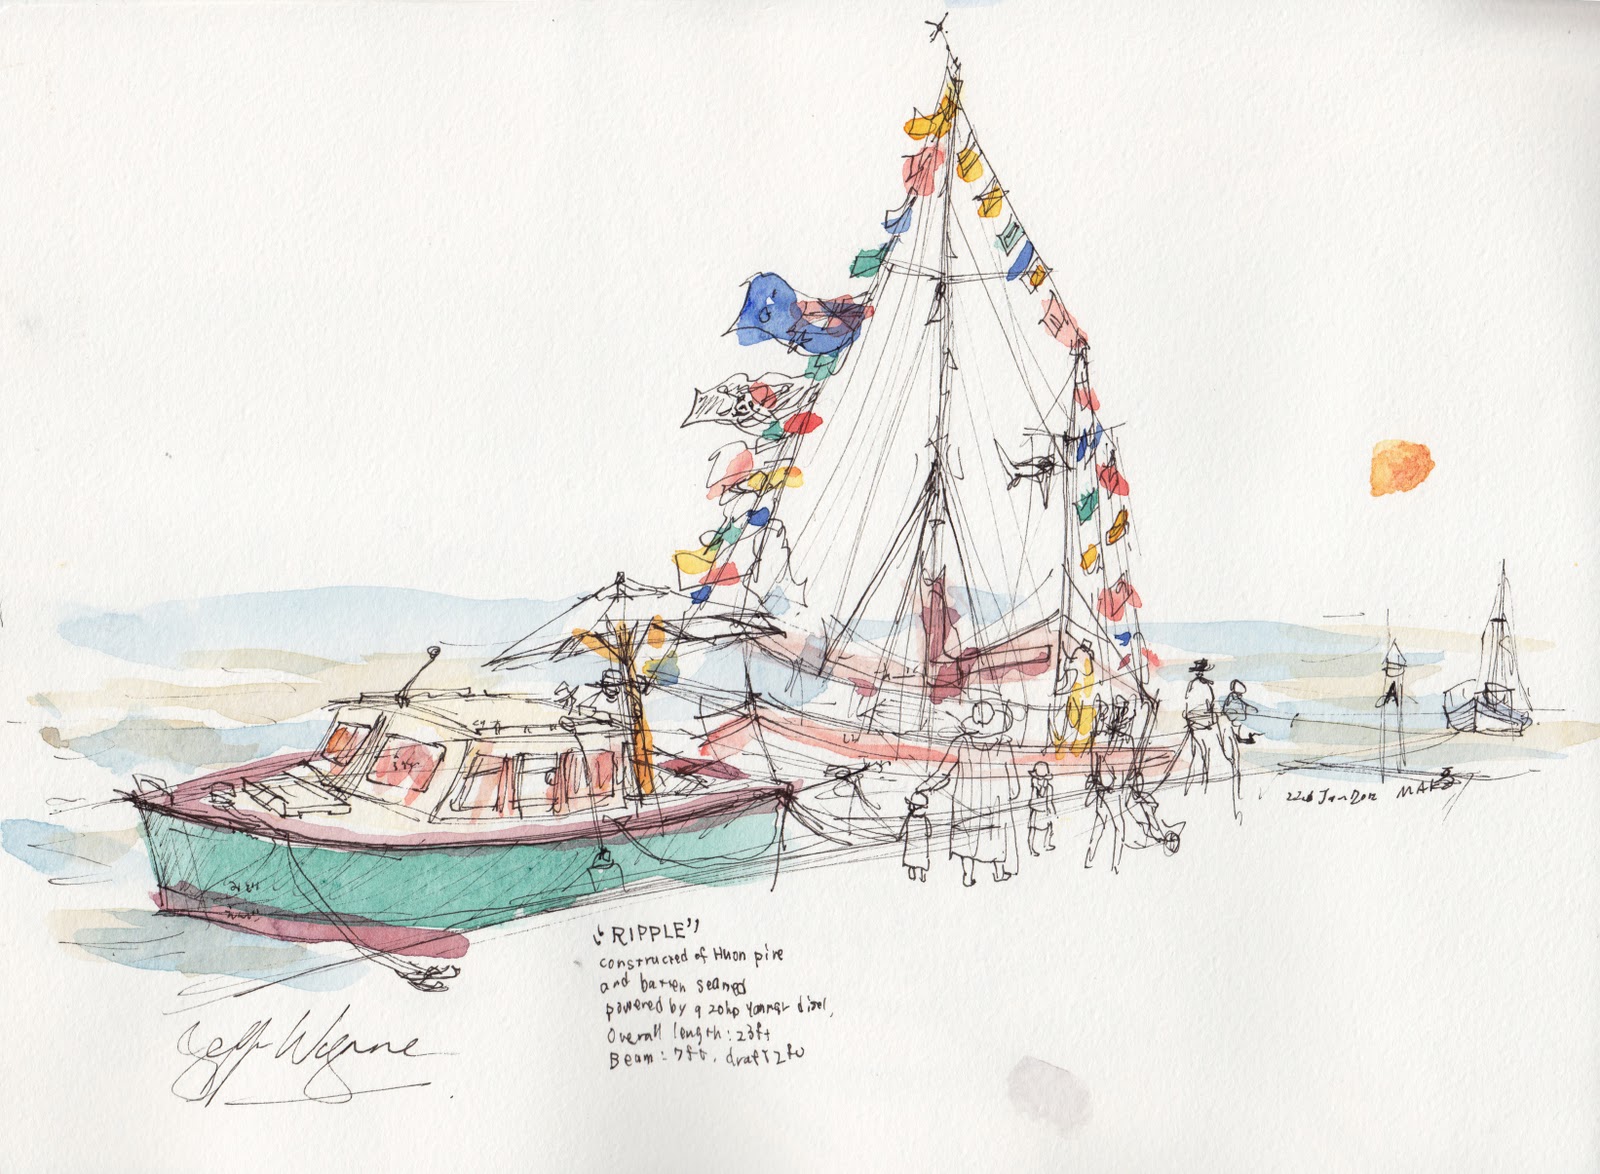 "RIPPLE"
constructed of Huon pine
and batten seamed
powered by a 20hp Yanmar disel,
Overall length: 23ft
Beam: 7ft, draft 2ft
Jeff
22nd Jan 2012
A